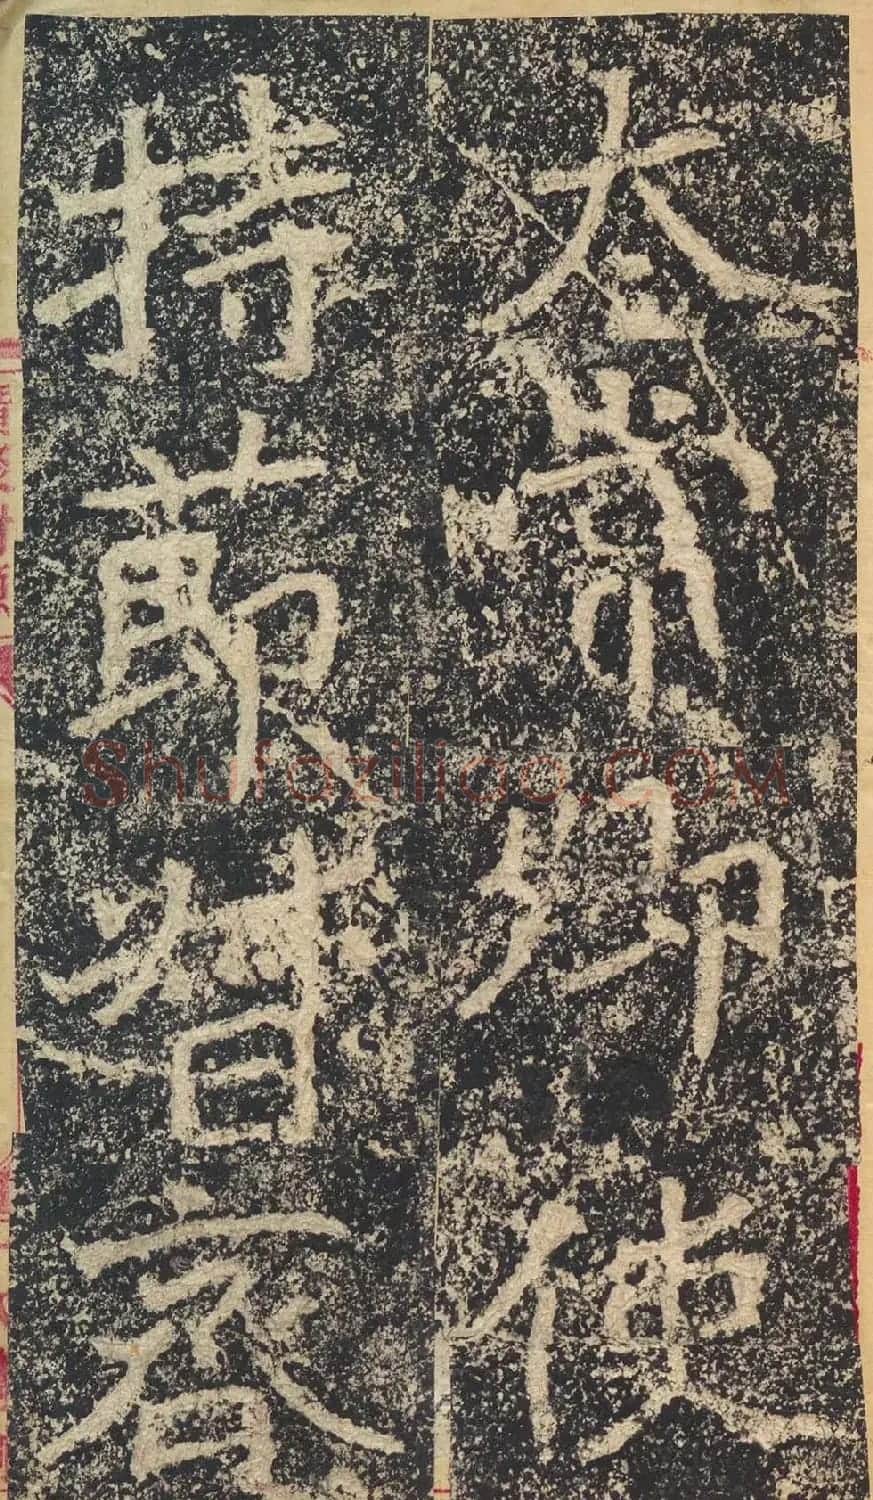 太常卿使
持節督兗
Shufaziliao.COM